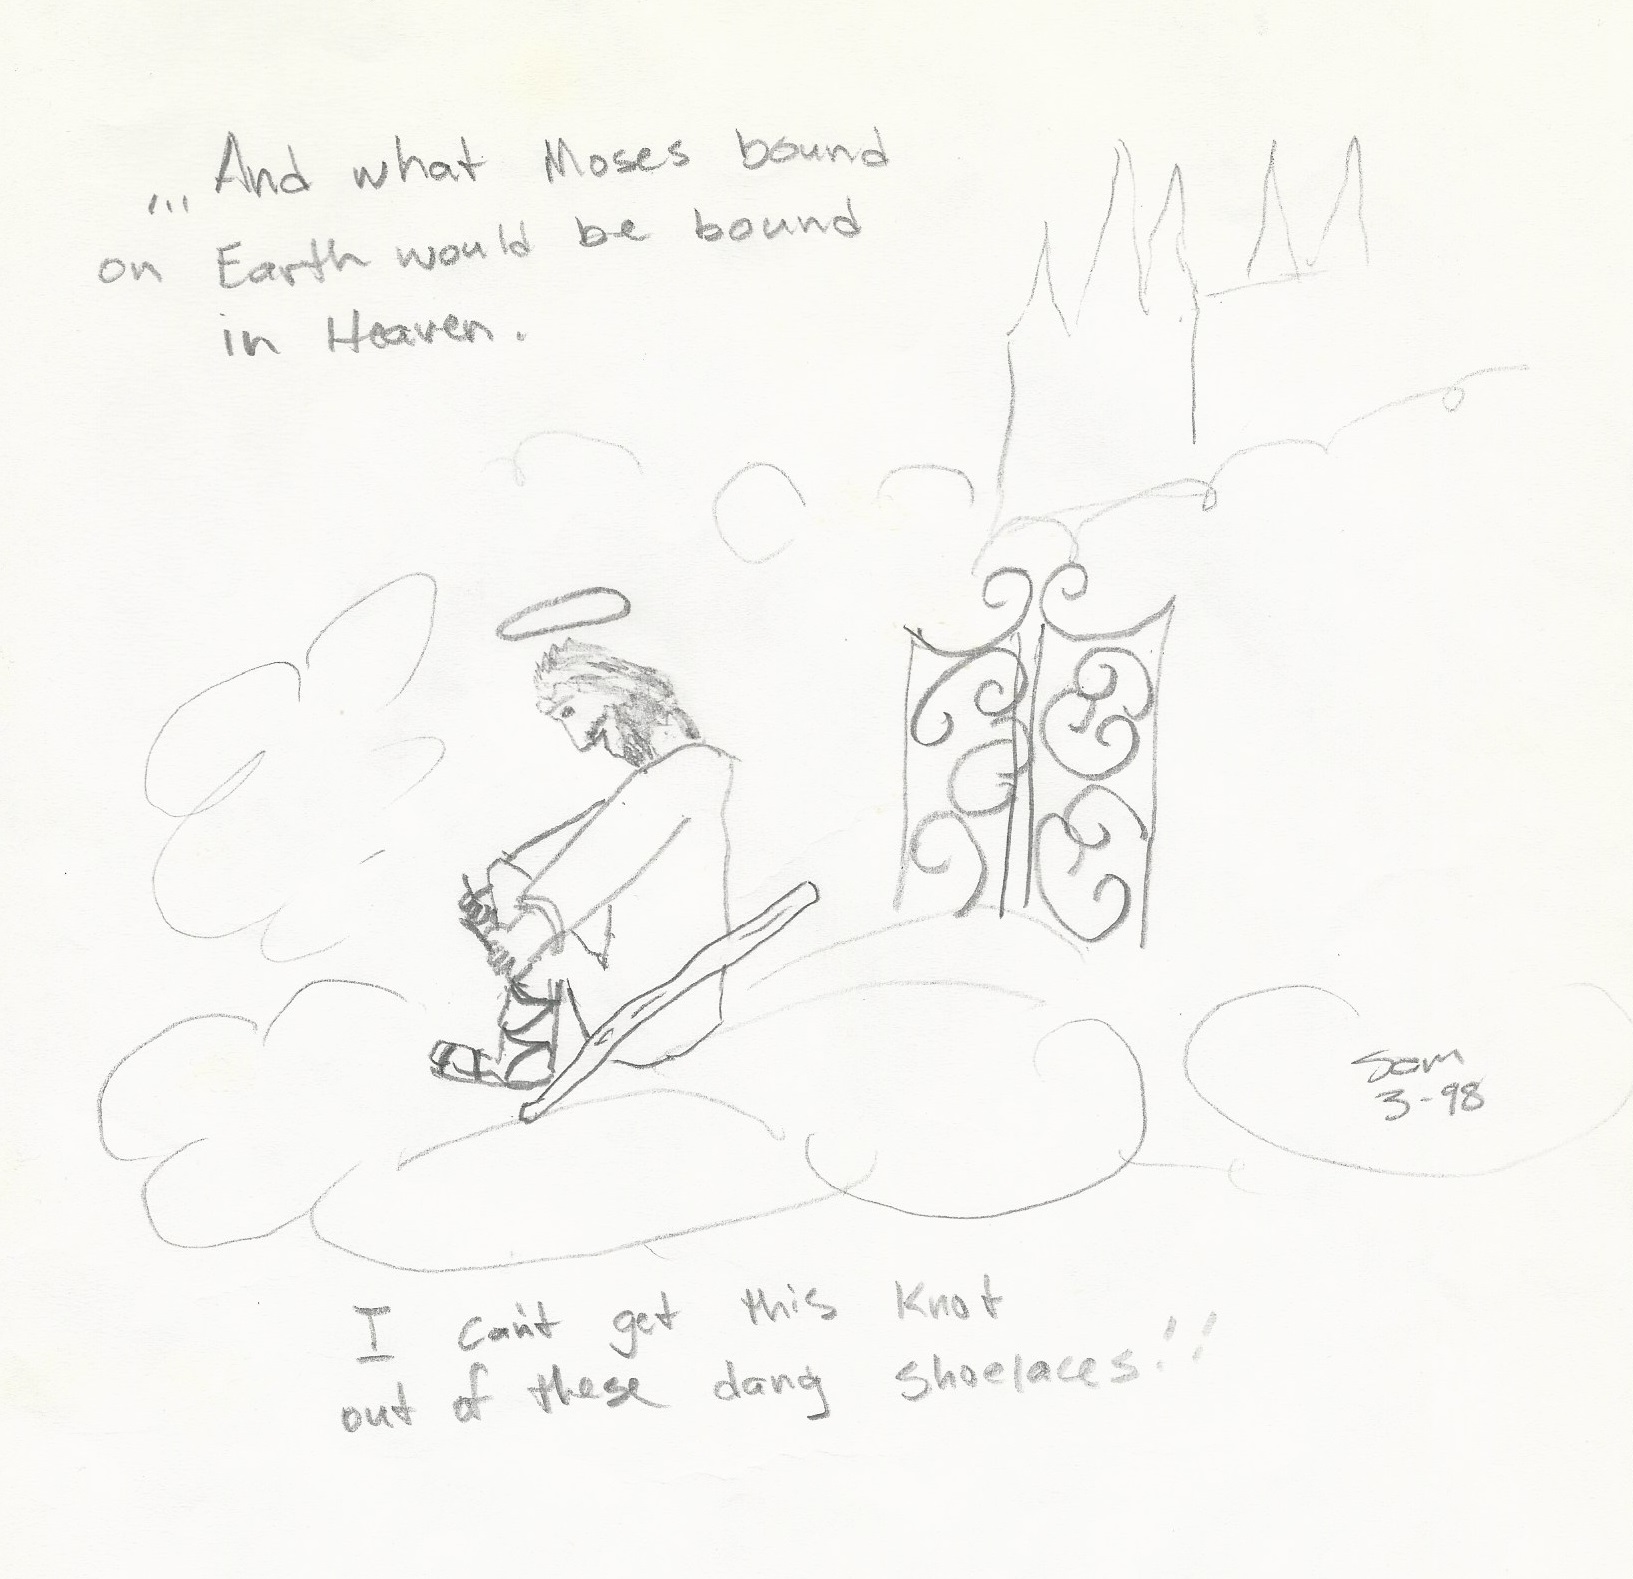 ... And what Moses bound
on Earth would be bound
in Heaven.
Sam
3-98
I can't get this knot
out of these dang shoelaces!!